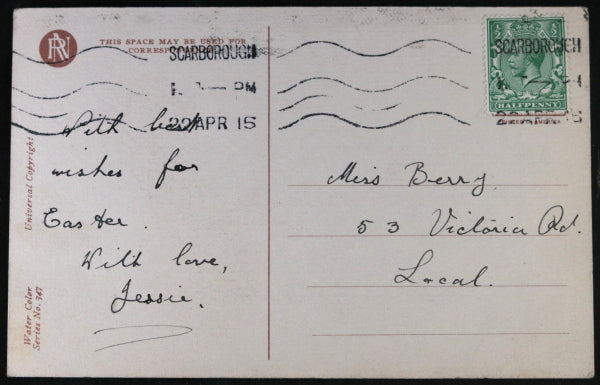 RN
THIS SPACE MAY BE USED FOR
CORRESPONDENCE
SCARBOROUGH
PM
22 APR 15
With best
wishes for
Easter.
With love,
Jessie.
Universal Copyright
Water Color
Series No. 347
SCARBOROUGH
22 APR 15
HALFPENNY
Miss Berry,
53 Victoria Rd.
Local.